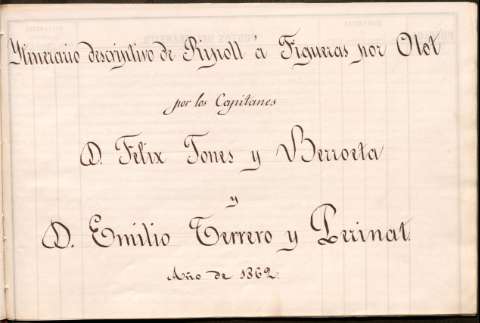 Ytinerario descriptivo de Ripoll á Figueras por Olot
por los Capitanes
D. Felix Jones y Berroeta
y
D. Emilio Terrero y Perinat.
Año de 1862.